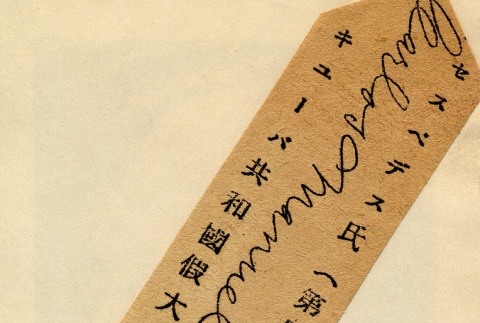 セスペデス氏(第
Carlos Manuel
キューバ共和國假大